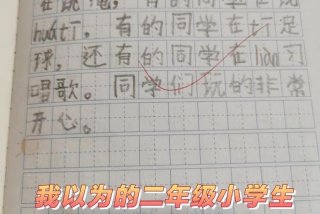 在跳绳，有的同学在玩
huá tī，有的同学在tī足
球，还有的同学在liàn习
唱歌。同学们玩的非常
开心。
我以为的二年级小学生